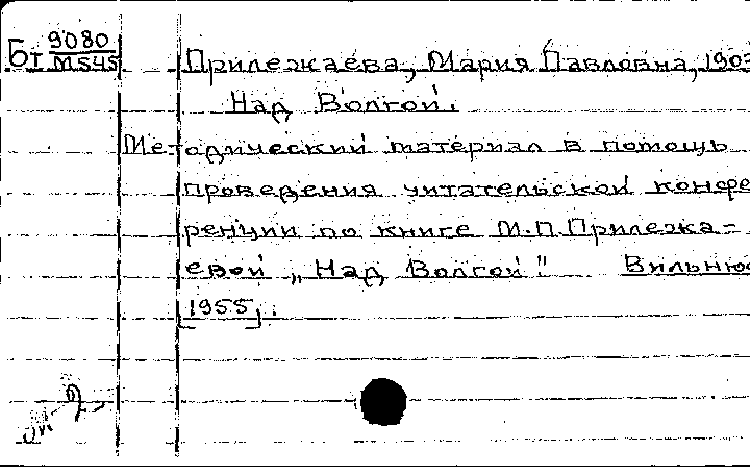 Бт 9080
М545
Прилежаева, Мария Павловна, 190
Над Волгой.
Методический материал в помощь
проведения читательской конфе
ренции по книге М.П. Прилежа-
евой „Над Волгой"
[1955].